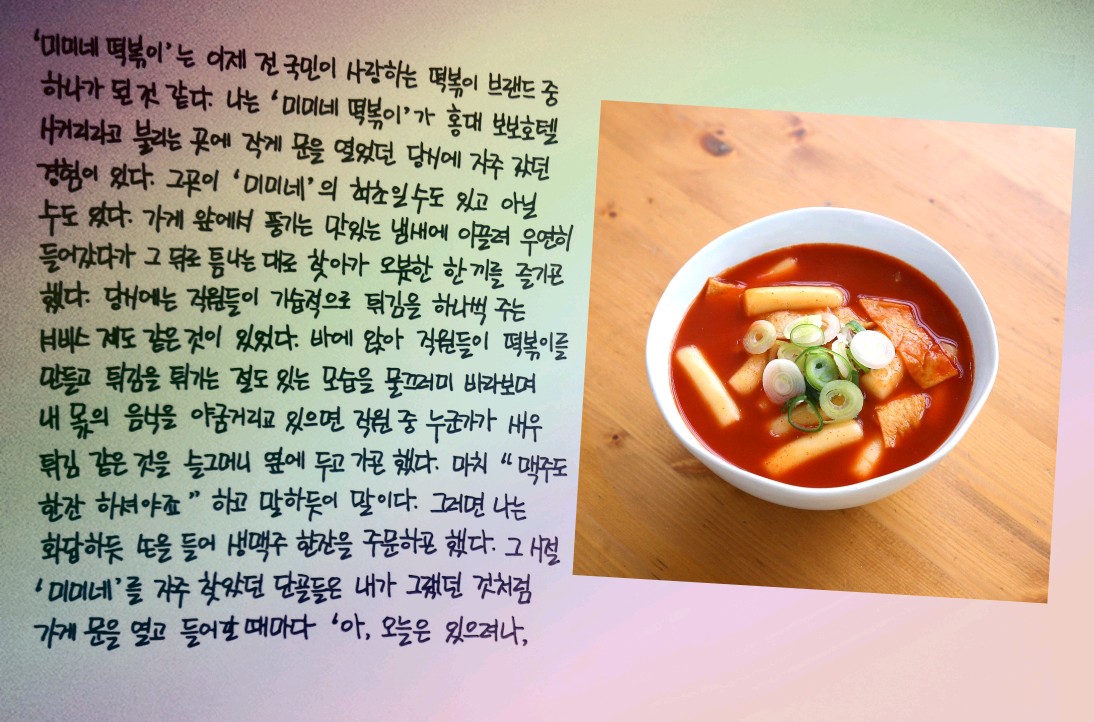 ‘미미네 떡볶이’는 이제 전 국민이 사랑하는 떡볶이 브랜드 중
하나가 된 것 같다. 나는 ‘미미네 떡볶이’가 홍대 보보호텔
사거리라고 불리는 곳에 작게 문을 열었던 당시에 자주 갔던
경험이 있다. 그곳이 ‘미미네’의 최초일 수도 있고 아닐
수도 있다. 가게 앞에서 풍기는 맛있는 냄새에 이끌려 우연히
들어갔다가 그 뒤로 틈나는 대로 찾아가 오붓한 한 끼를 즐기곤
했다. 당시에는 직원들이 기습적으로 튀김을 하나씩 주는
서비스 제도 같은 것이 있었다. 바에 앉아 직원들이 떡볶이를
만들고 튀김을 튀기는 절도 있는 모습을 물끄러미 바라보며
내 몫의 음식을 야굼거리고 있으면 직원 중 누군가가 새우
튀김 같은 것을 슬그머니 옆에 두고 가곤 했다. 마치 “맥주도
한잔 하셔야죠” 하고 말하듯이 말이다. 그러면 나는
화답하듯 손을 들어 생맥주 한잔을 주문하곤 했다. 그 시절
‘미미네’를 자주 찾았던 단골들은 내가 그랬던 것처럼
가게 문을 열고 들어갈 때마다 ‘아, 오늘은 있으려나,